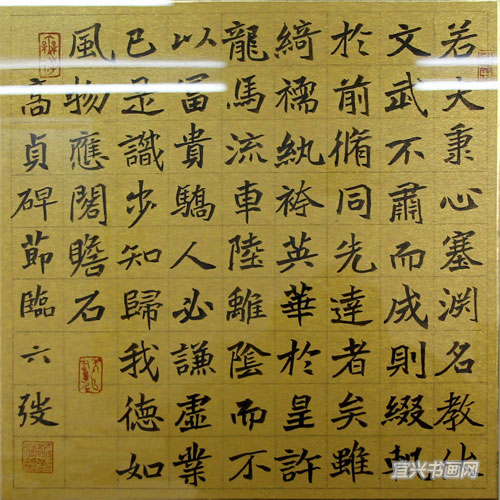 若夫秉心塞渊名教
文武不肅而成則綴軌
於前脩同先達者矣雖
綺襦紈袴英華於皇許
龍馬流車陸離陰而不
以冨貴驕人必謙虛業
已是識步知歸我德如
風物應閣瞻石
高貞碑節臨六弢
宜兴书画网